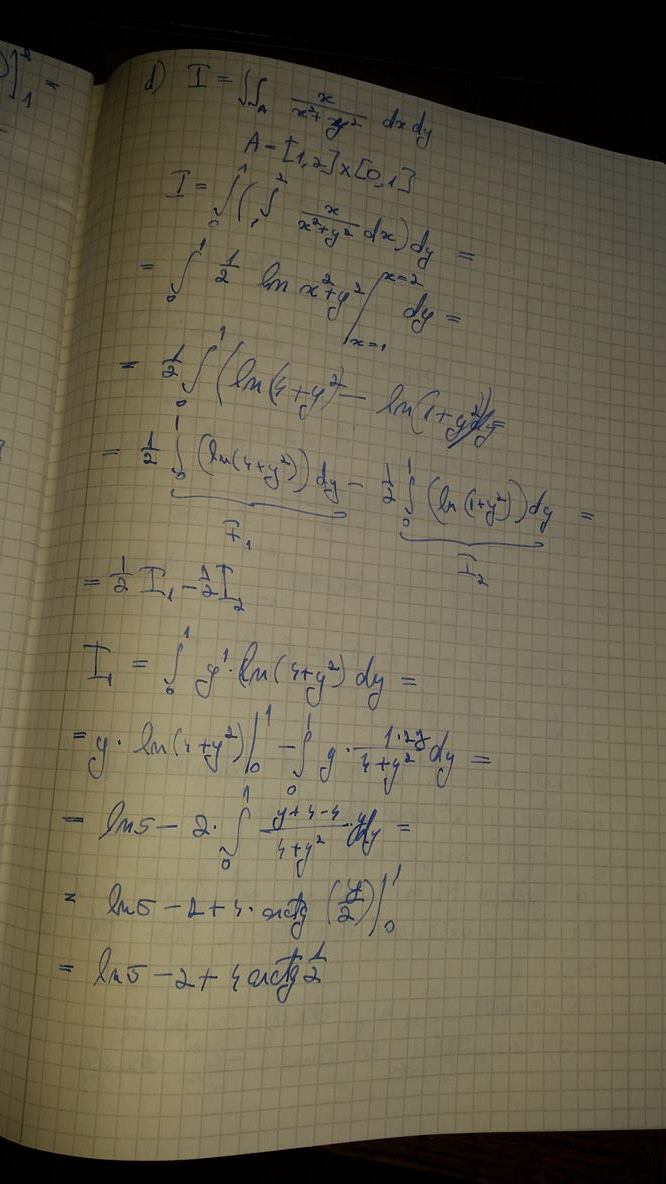 ]₁² =
d) I = ∬_A x/(x²+y²) dxdy
A = [1,2]×[0,1]
I = ∫₀¹ (₁∫² x/(x²+y²) dx) dy =
= ∫₀¹ 1/2 ln x²+y² |_{x=1}^{x=2} dy =
= 1/2 ∫₀¹ (ln(4+y²) − ln(1+y²)) dy =
= 1/2 ∫₀¹ (ln(4+y²)) dy − 1/2 ∫₀¹ (ln(1+y²)) dy =
I₁ I₂
= 1/2 I₁ − 1/2 I₂
I₁ = ∫₀¹ y' · ln(4+y²) dy =
= y · ln(4+y²) |₀¹ − ∫₀¹ y · (1·2y)/(4+y²) dy =
= ln5 − 2 · ∫₀¹ (y+4−4)/(4+y²) dy =
= ln5 − 2 + 4 · arctg (y/2) |₀¹
= ln5 − 2 + 4 arctg 1/2